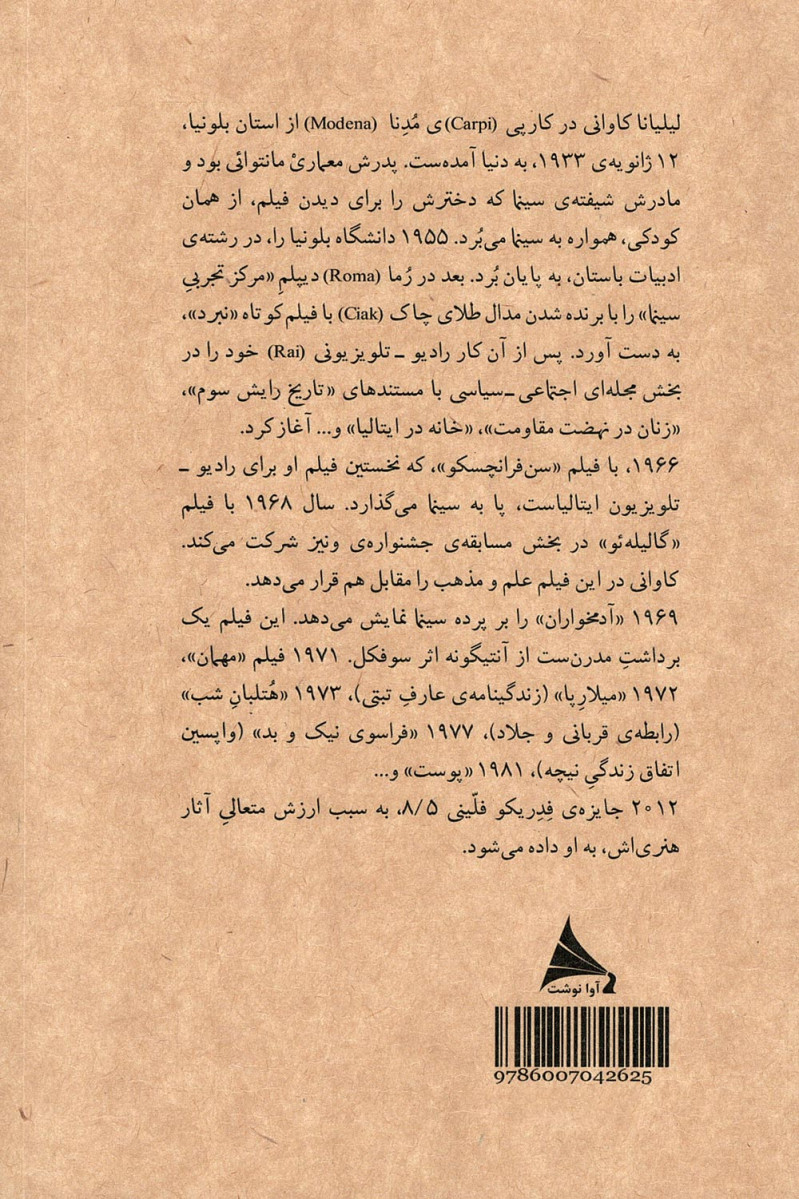 لیلیانا کاوانی در کارپی (Carpi)ی مُدِنا (Modena) از استان بلونیا،
۱۲ ژانویه‌ی ۱۹۳۳، به دنیا آمده‌ست. پدرش معماریْ مانتوائی بود و
مادرش شیفته‌ی سینما که دخترش را برای دیدن فیلم، از همان
کودکی، همواره به سینما می‌بُرد. ۱۹۵۵ دانشگاه بلونیا را، در رشته‌ی
ادبیات باستان، به پایان بُرد. بعد در رُما (Roma) دیپلمِ «مرکز تجربیِ
سینما» را با برنده شدن مدال طلای چاک (Ciak) با فیلم کوتاه «نبرد»،
به دست آورد. پس از آن کار رادیو ـ تلویزیونی (Rai) خود را در
بخش مجله‌ای اجتماعی ـ سیاسی با مستندهای «تاریخ رایش سوم»،
«زنان در نهضت مقاومت»، «خانه در ایتالیا» و... آغاز کرد.
۱۹۶۶، با فیلم «سن‌فرانچسکو»، که نخستین فیلم او برای رادیو ـ
تلویزیون ایتالیاست، پا به سینما می‌گذارد. سال ۱۹۶۸ با فیلم
«گالیله‌ئو» در بخش مسابقه‌ی جشنواره‌ی ونیز شرکت می‌کند.
کاوانی در این فیلم علم و مذهب را مقابل هم قرار می‌دهد.
۱۹۶۹ «آدمخواران» را بر پرده سینما نمایش می‌دهد. این فیلم یک
برداشتِ مدرن‌ست از آنتیگونه اثر سوفکل. ۱۹۷۱ فیلم «مهمان»،
۱۹۷۲ «میلارِپا» (زندگینامه‌ی عارفِ تبتی)، ۱۹۷۳ «هُتلبانِ شب»
(رابطه‌ی قربانی و جلاد)، ۱۹۷۷ «فراسوی نیک و بد» (واپسین
اتفاق زندگیِ نیچه)، ۱۹۸۱ «پوست» و...
۲۰۱۲ جایزه‌ی فِدِریکو فلّینی ۸/۵، به سبب ارزش متعالیِ آثار
هنری‌اش، به او داده می‌شود.
آوا نوشت
9786007042625